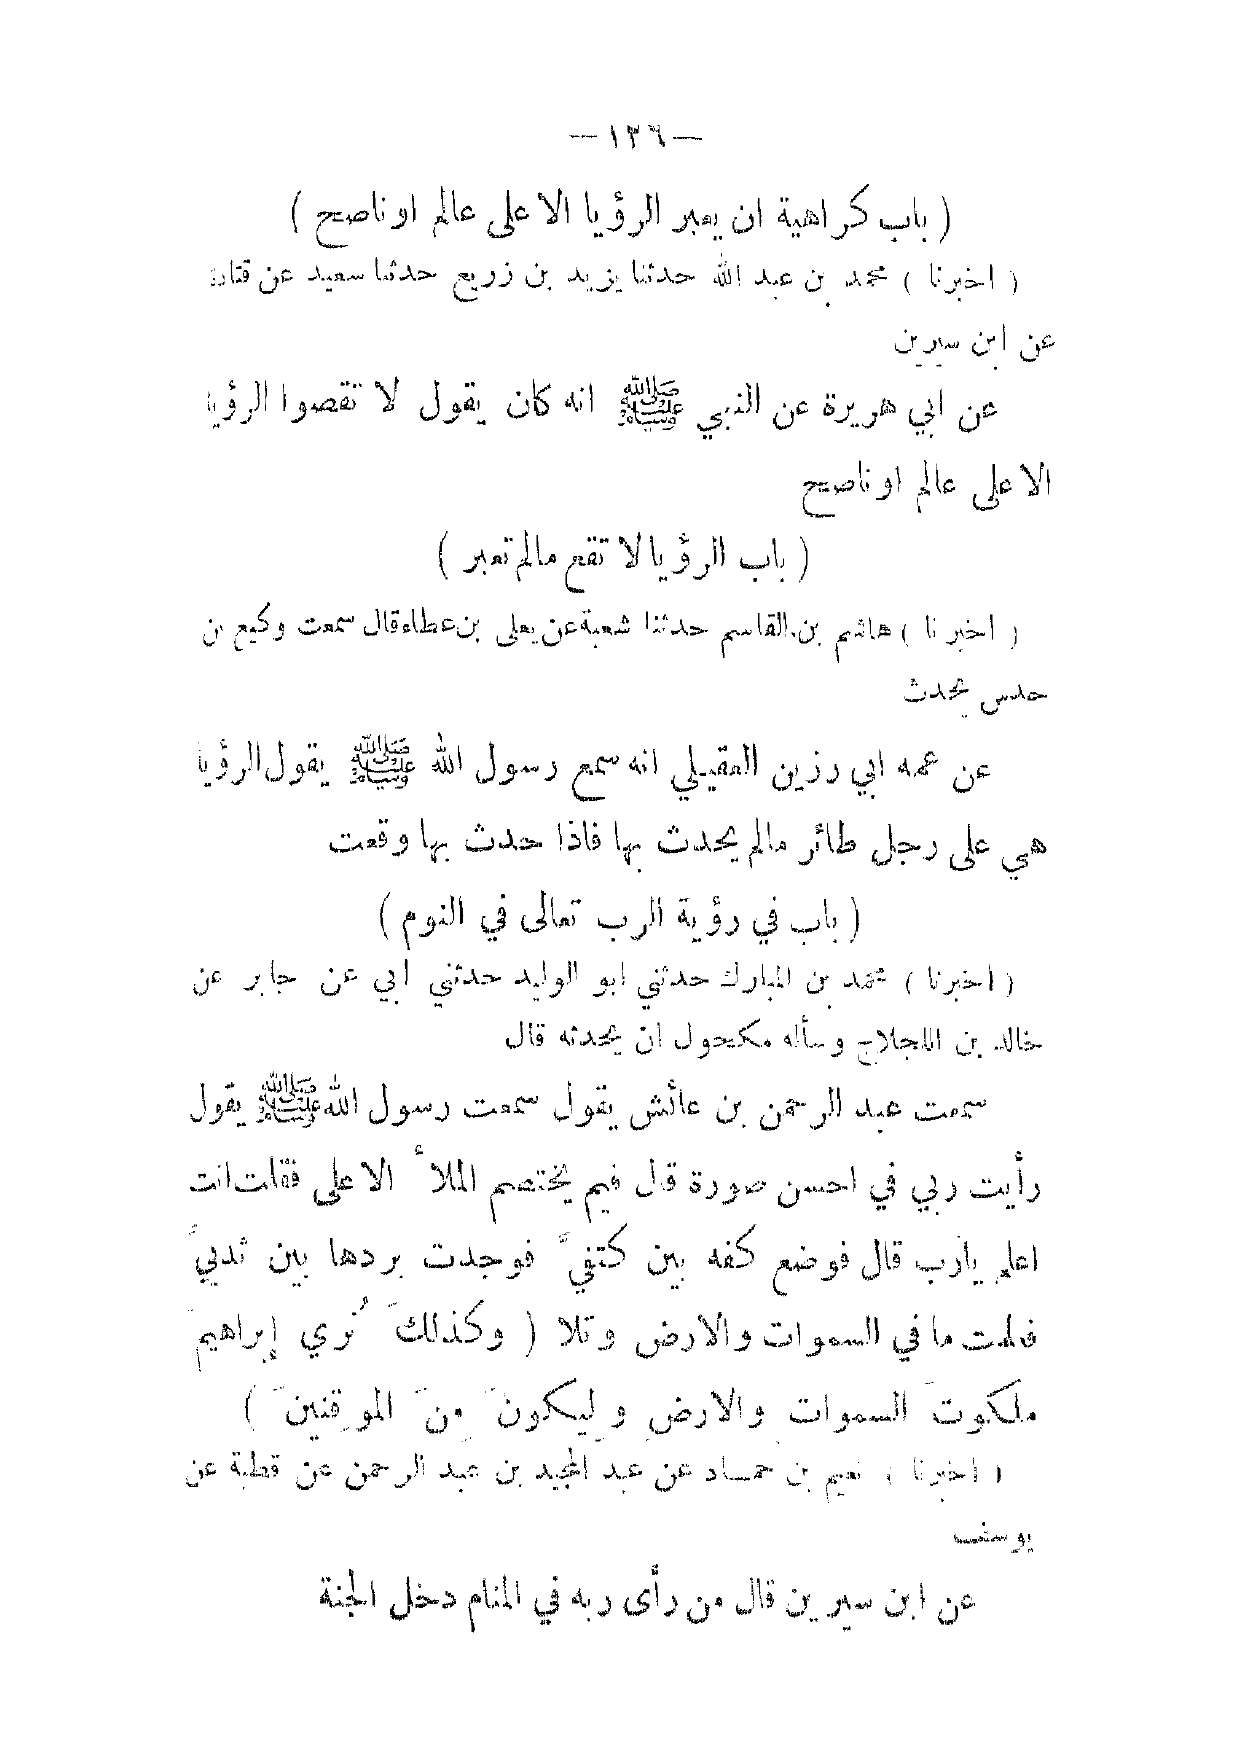 —١٢٦—
( باب كراهية ان يعبر الرؤيا الا على عالم او ناصح )
( اخبرنا ) محمد بن عبد الله حدثنا يزيد بن زريع حدثنا سعيد عن قتادة
عن ابن سيرين
عن ابي هريرة عن النبي ﷺ انه كان يقول لا تقصوا الرؤيا
الا على عالم او ناصح
( باب الرؤيا لا تقع مالم تعبر )
( اخبرنا ) هاشم بن القاسم حدثنا شعبة عن يعلى بن عطاء قال سمعت وكيع بن
حدس يحدث
عن عمه ابي رزين العقيلي انه سمع رسول الله ﷺ يقول الرؤيا
هي على رجل طائر مالم يحدث بها فاذا حدث بها وقعت
( باب في رؤية الرب تعالى في النوم )
( اخبرنا ) محمد بن المبارك حدثني ابو الوليد حدثني ابي عن جابر عن
خالد بن اللجلاج وسأله مكحول ان يحدثه قال
سمعت عبد الرحمن بن عائش يقول سمعت رسول الله ﷺ يقول
رأيت ربي في احسن صورة قال فيم يختصم الملأ الاعلى فقلت انت
اعلم يا رب قال فوضع كفه بين كتفيَّ فوجدت بردها بين ثدييَّ
فعلمت ما في السموات والارض وتلا ( وكذلكَ نُري إبراهيمَ
ملكوتَ السموات والارضِ وليكونَ مِنَ الموقنينَ )
( اخبرنا ) نعيم بن حمـاد عن عبد المجيد بن عبد الرحمن عن قطبة عن
يوسف
عن ابن سيرين قال من رأى ربه في المنام دخل الجنة